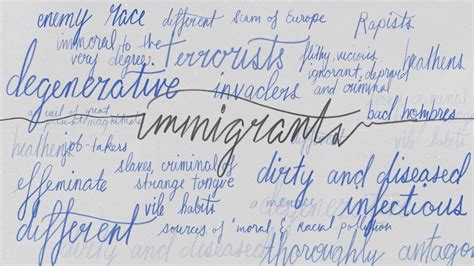 enemy race different Scum of Europe Rapists
immoral to the very degree. terrorists filthy, vicious ignorant, depraved and criminal heathens
degenerative invaders
a evil of great bad hombres
immigrants
heathens job-takers vile habits
slaves, criminals dirty and diseased
effeminate strange tongue
vile habits a menace infectious
different sources of moral & racial pollution
dirty and diseased thoroughly antago